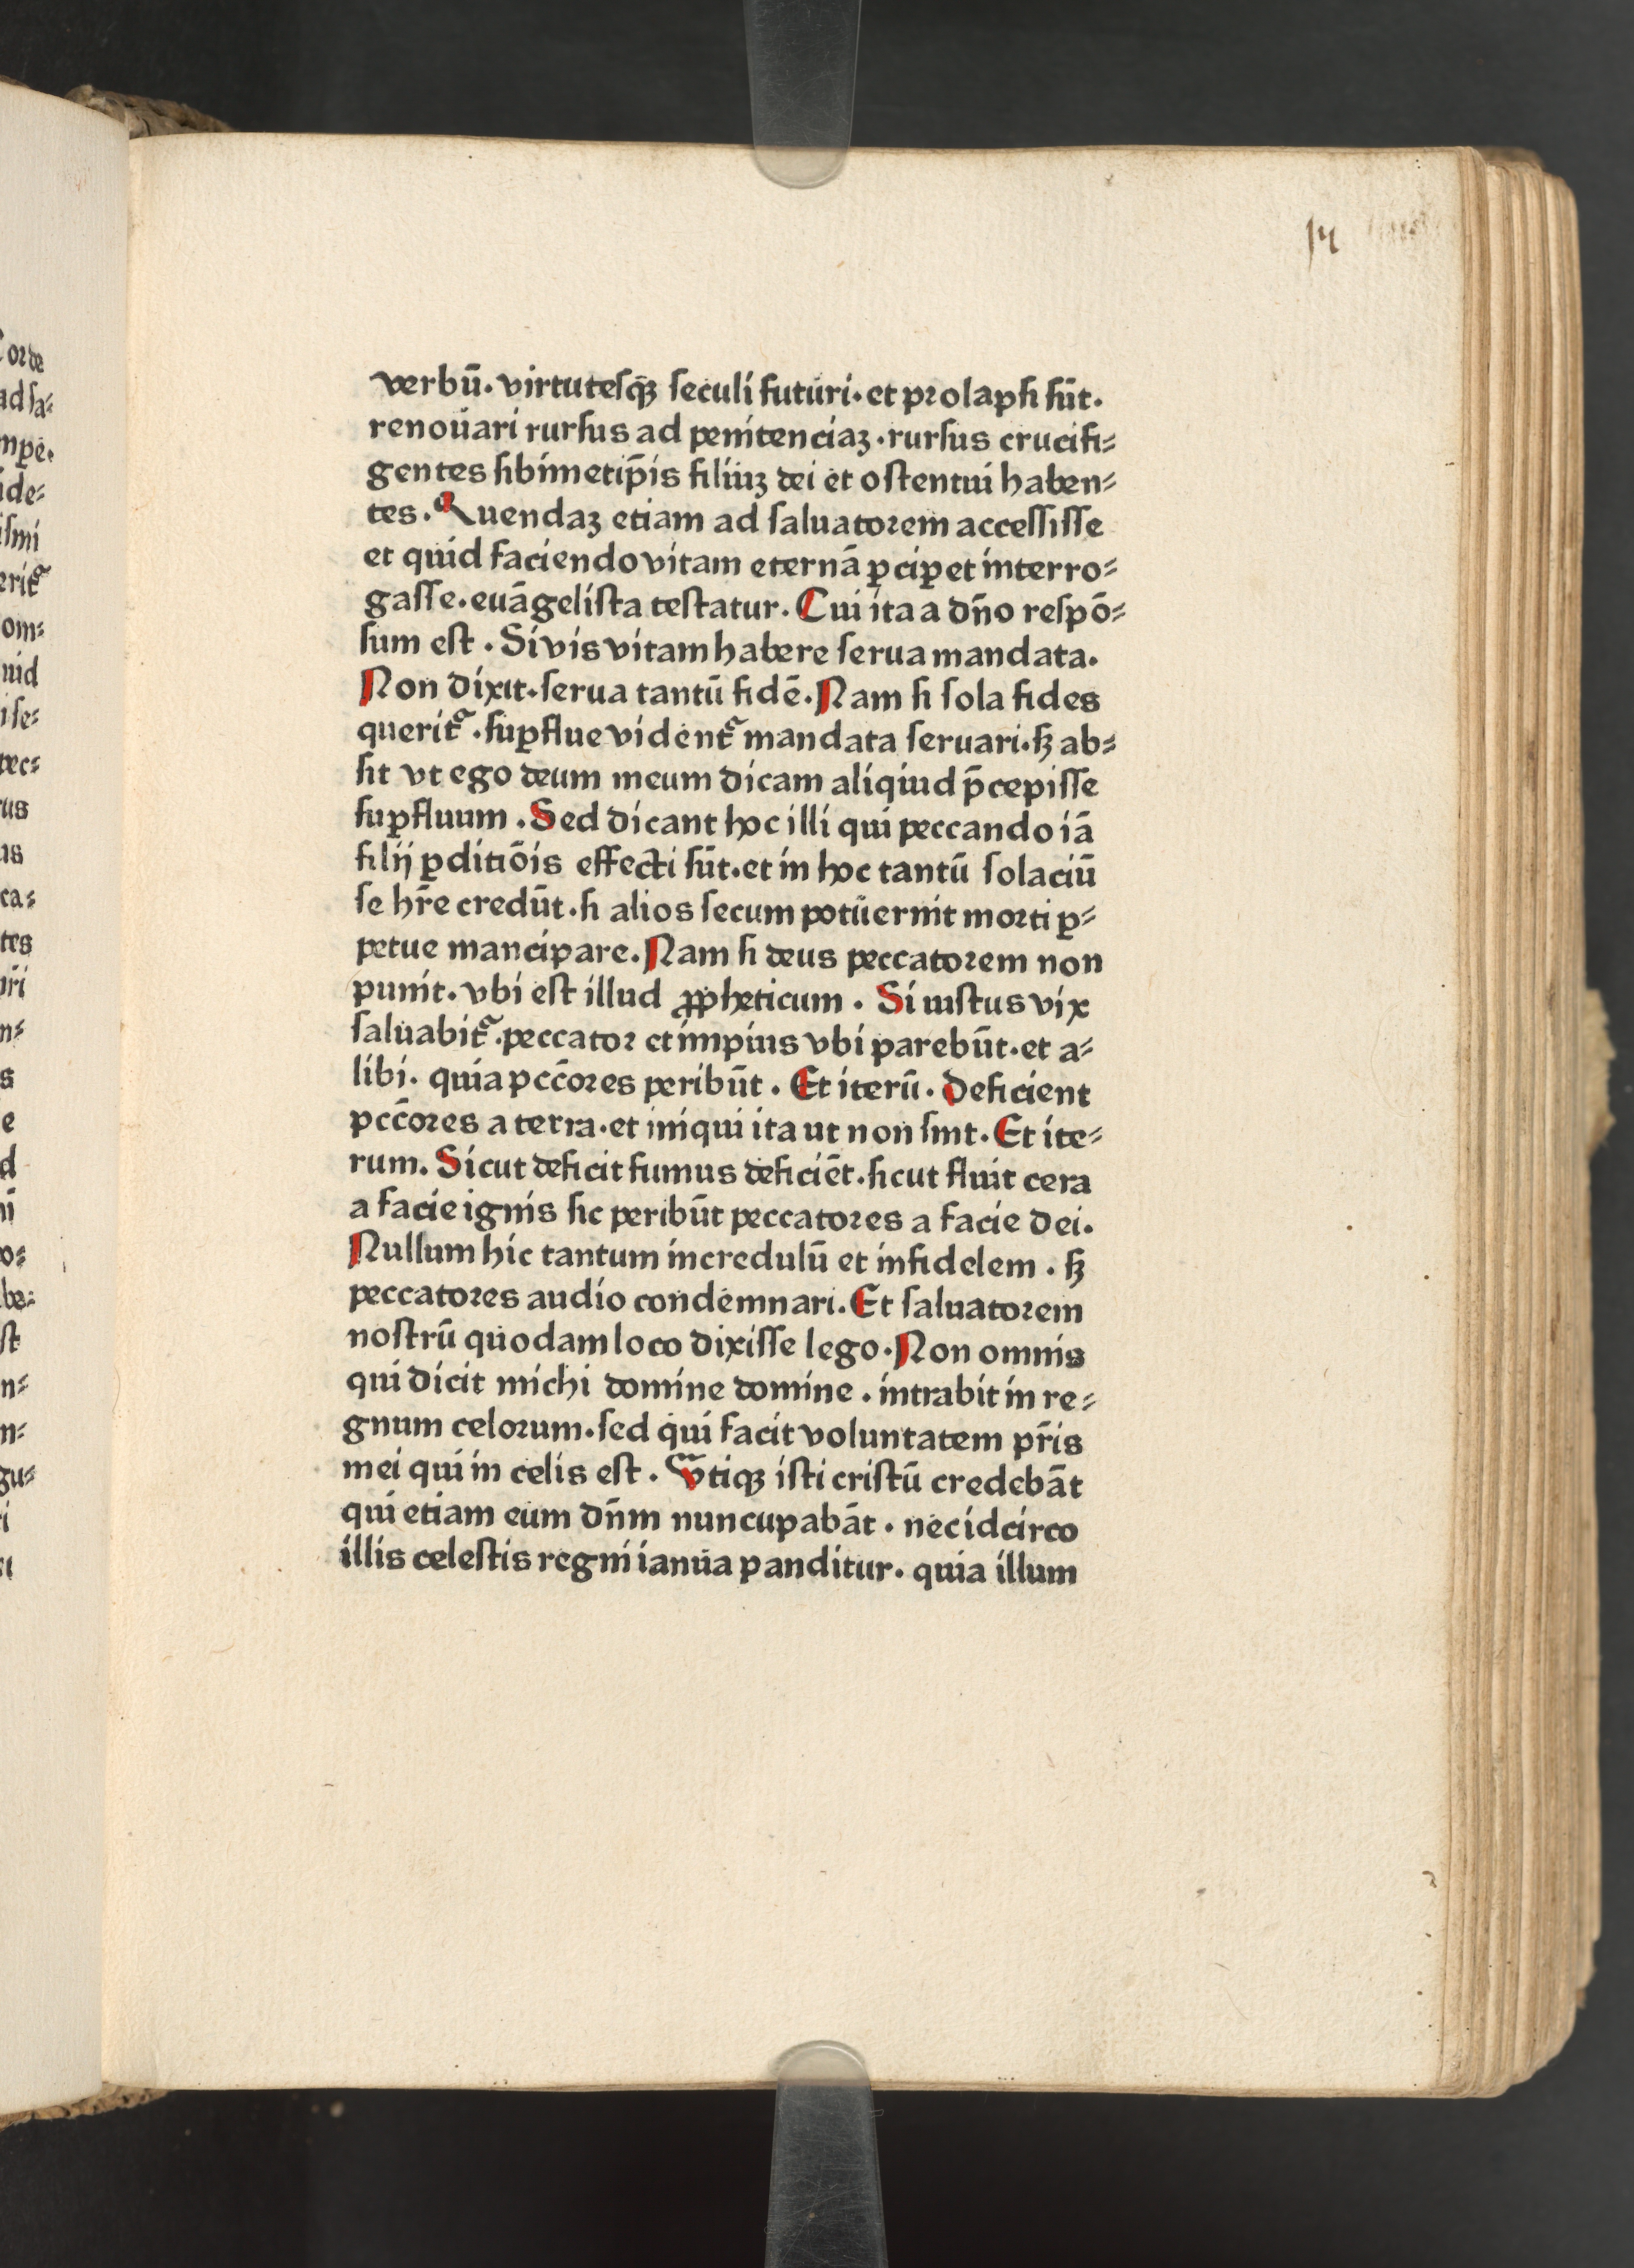 14
verbū. virtutesqꝫ seculi futuri. et prolapsi sūt.
renouari rursus ad penitenciaꝫ. rursus crucifi⸗
gentes sibimetip̄is filiuꝫ dei et ostentui haben⸗
tes. Quendaꝫ etiam ad saluatorem accessisse
et quid faciendo vitam eternā ꝑciꝑet interro⸗
gasse. euāgelista testatur. Cui ita a dn̄o respō⸗
sum est. Si vis vitam habere serua mandata.
Non dixit. serua tantū fidē. Nam si sola fides
querit᷑. suꝑflue vident᷑ mandata seruari. sꝫ ab⸗
sit vt ego deum meum dicam aliqiud p̄cepisse
suꝑfluum. Sed dicant hoc illi qui peccando iā
filij ꝑditiōis effecti sūt. et in hoc tantū solaciū
se hr̄e credūt. si alios secum potuernit morti ꝑ⸗
petue mancipare. Nam si deus peccatorem non
punit. vbi est illud ꝓpheticum. Si iustus vix
saluabit᷑. peccator et impius vbi parebūt. et a⸗
libi. quia pcc̄ores peribūt. Et iterū. Deficient
pcc̄ores a terra. et iniqui ita ut non sint. Et ite⸗
rum. Sicut deficit fumus deficiēt. sicut fluit cera
a facie ignis sic peribūt peccatores a facie dei.
Nullum hic tantum incredulū et infidelem. sꝫ
peccatores audio condemnari. Et saluatorem
nostrū quodam loco dixisse lego. Non omnis
qui dicit michi domine domine. intrabit in re⸗
gnum celorum. sed qui facit voluntatem pr̄is
mei qui in celis est. Vtiqꝫ isti cristū credebāt
qui etiam eum dn̄m nuncupabāt. nec idcirco
illis celestis regni ianua panditur. quia illum